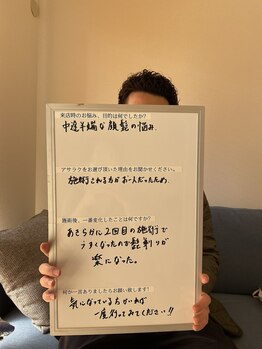 来店時のお悩み、目的は何でしたか?
中途半端な顔髭の悩み
アサラケをお選び頂いた理由をお聞かせください。
施術される方がお一人だったため
施術後、一番変化したことは何ですか?
あきらかに2回目の施術で
うすくなったのか髭剃りが
楽になった。
何か一言ありましたらお願い致します!
気になっている方がいれば
一度行ってみてください!!